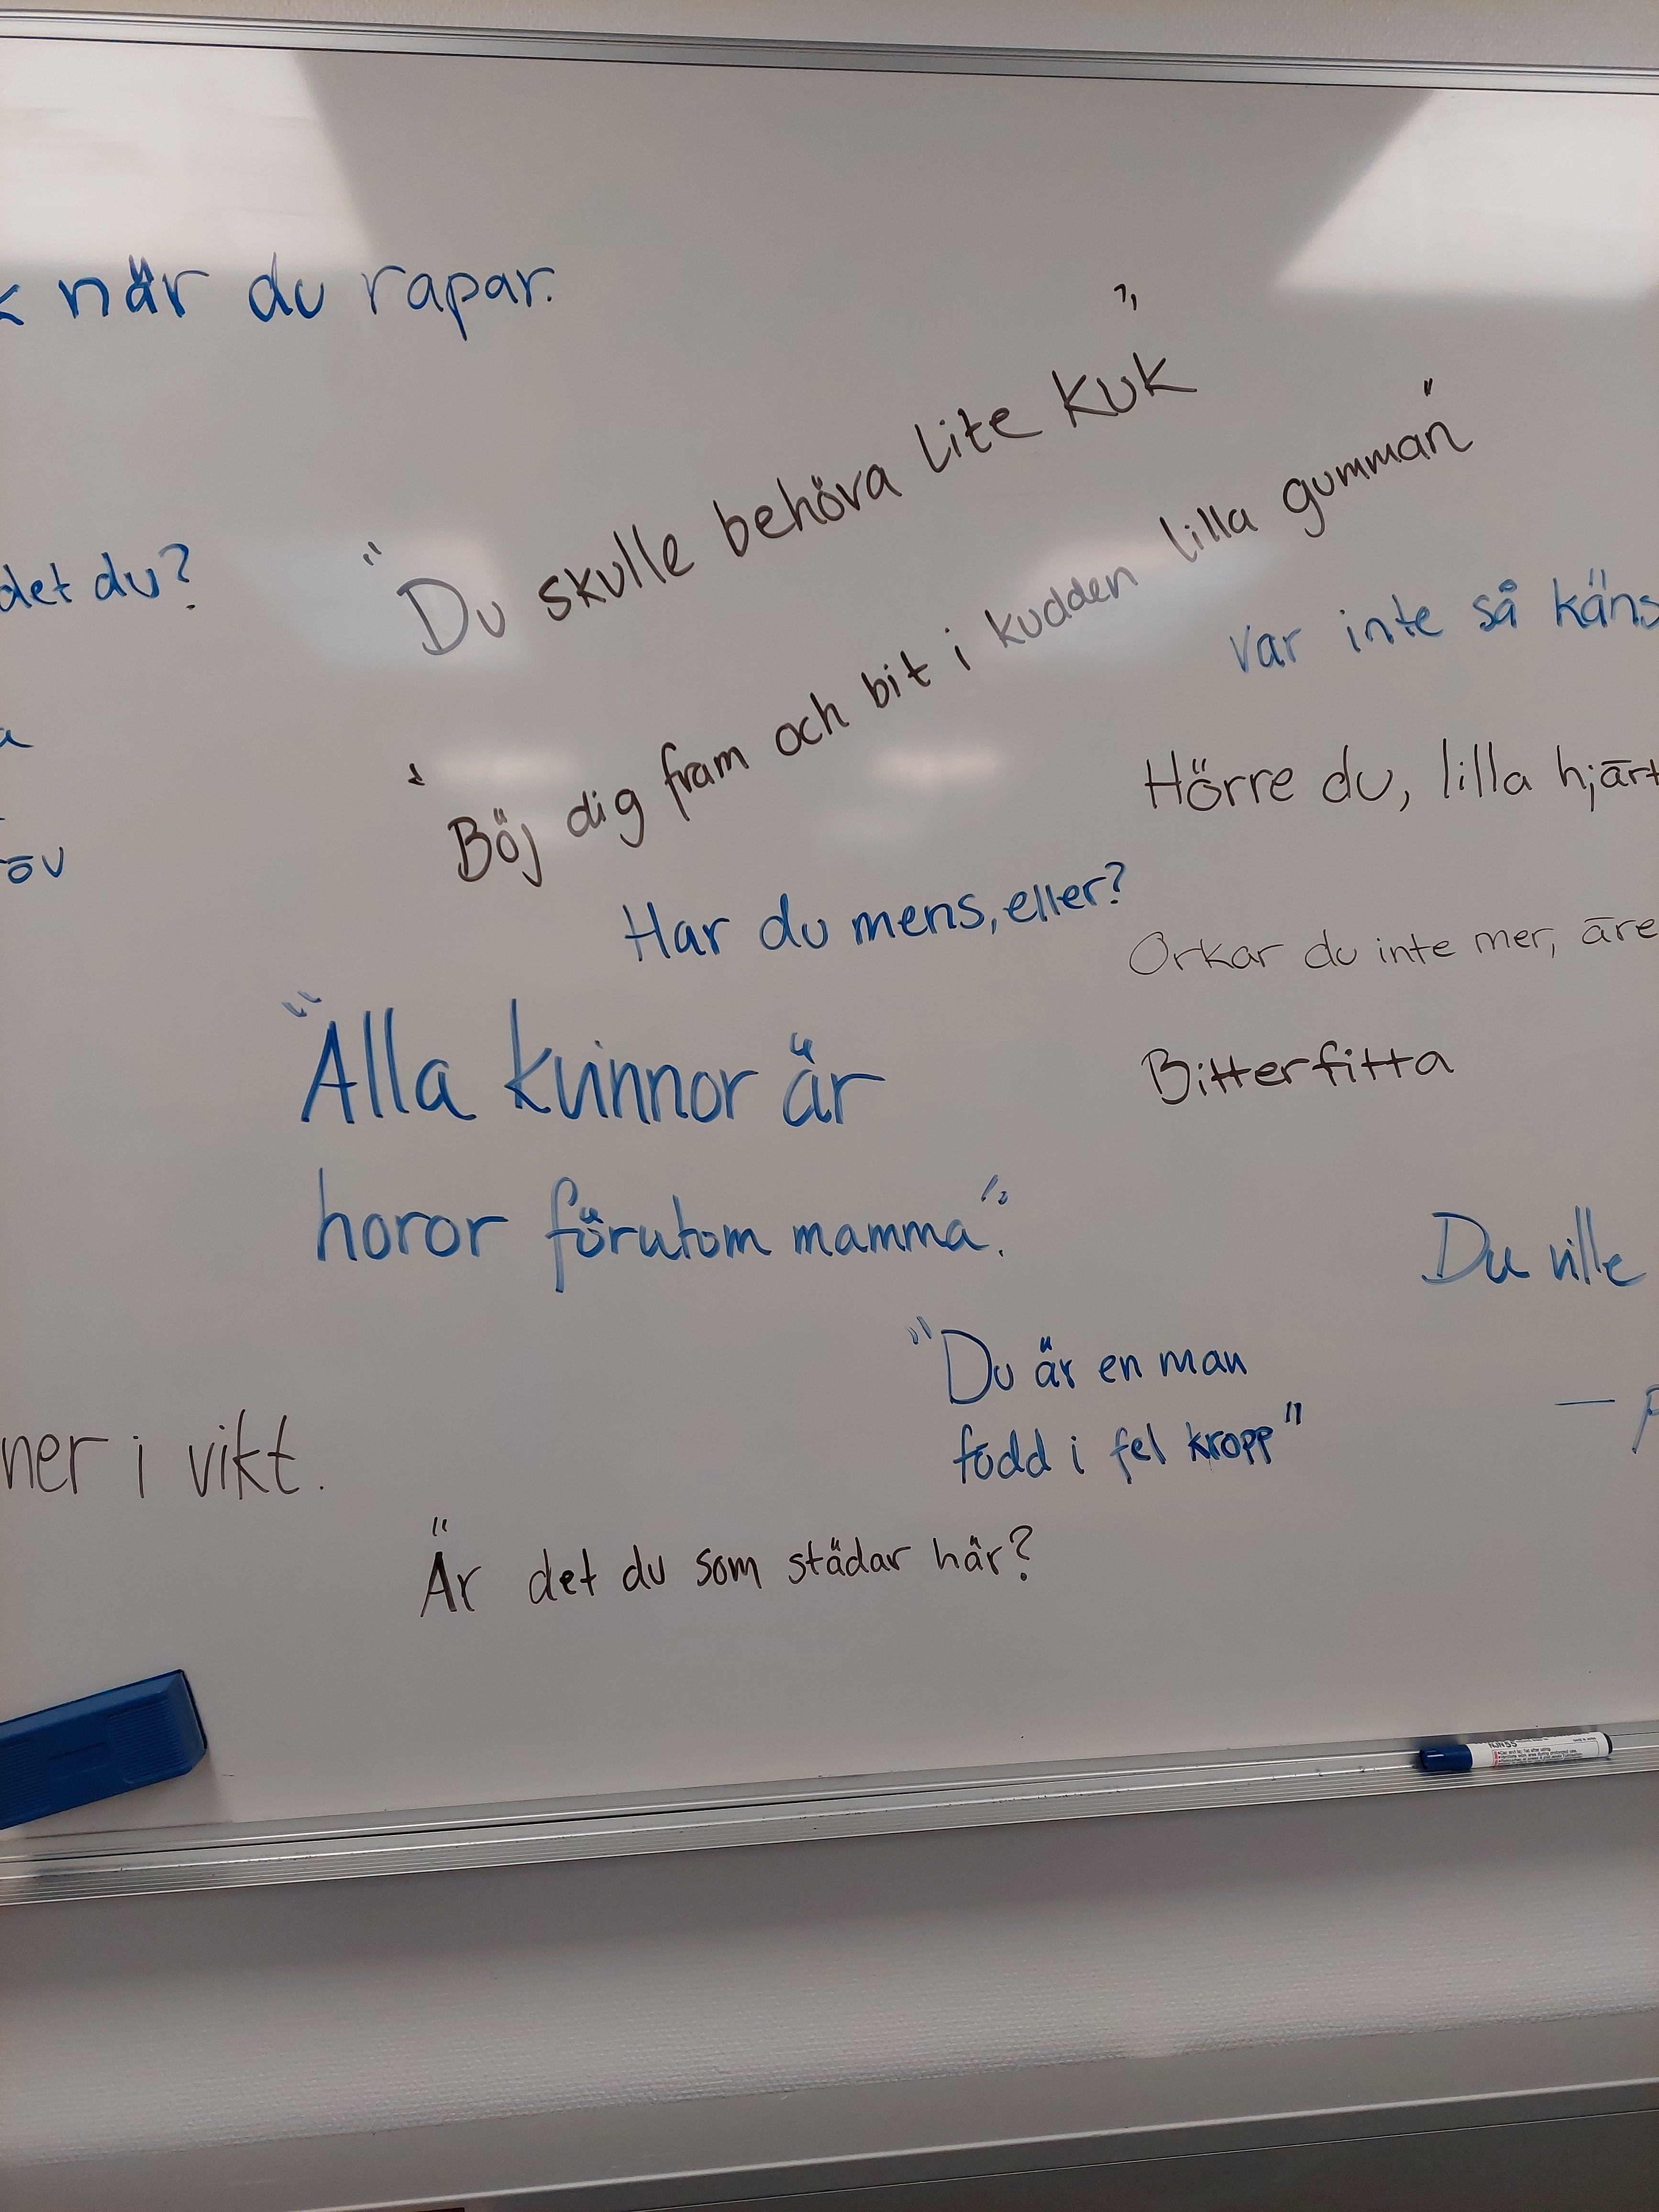 när du rapar.
"Du skulle behöva lite KUK"
"Böj dig fram och bit i kudden lilla gumman"
det du?
var inte så käns
Hörre du, lilla hjärt
öv
Har du mens, eller?
Orkar du inte mer, äre
"Alla kvinnor är
Bitterfitta
horor förutom mamma".
Du ville
"Du är en man
född i fel kropp"
ner i vikt.
"Är det du som städar här?